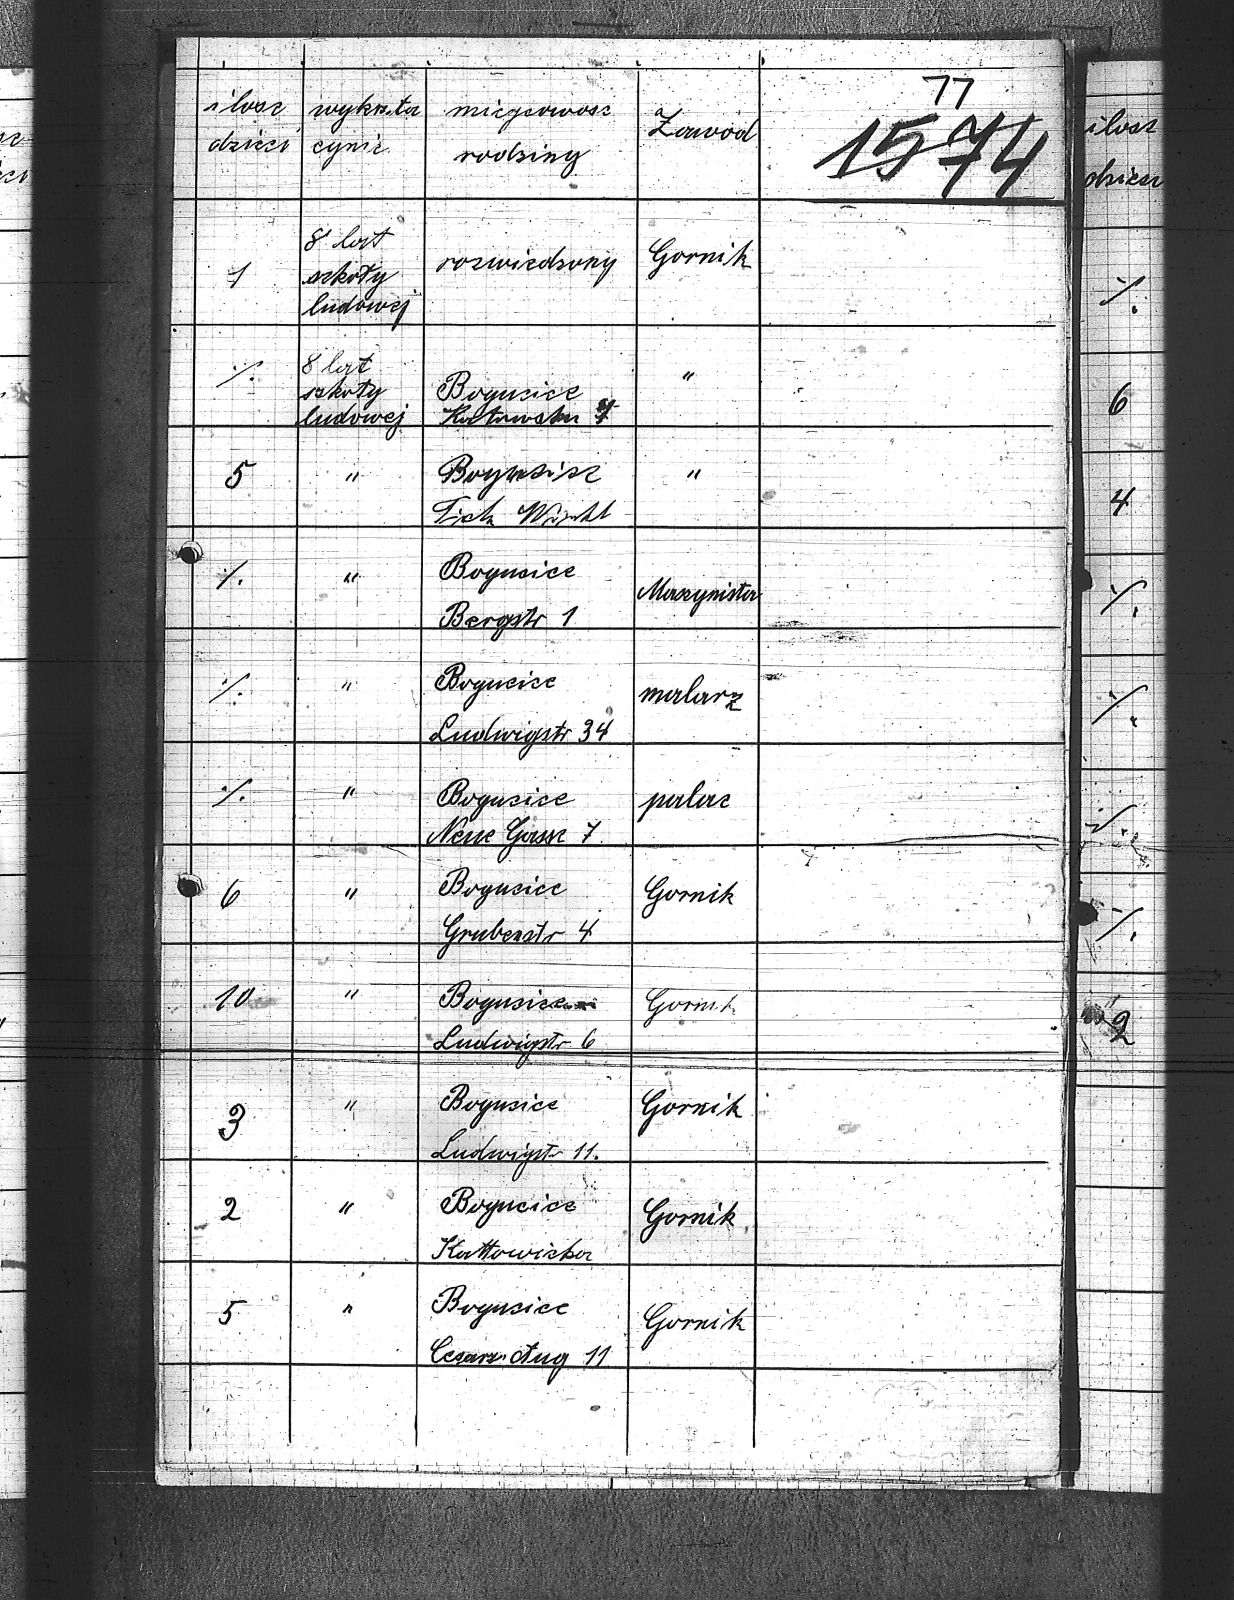 77
1574
ilosc dzieci
wykszta cynie
miejscowosc rodziny
Zawód
1
8 lat
szkoły
ludowej
rozwiedzony
Gornik
·/.
8 lat
szkoły
ludowej
Bogucice
"
5
"
Bogucice
"
·/.
"
Bogucice
Bergstr 1
Maszynista
·/.
"
Bogucice
Ludwigstr 34
malarz
·/.
"
Bogucice
Neue Gasse 7
palac
6
"
Bogucice
Grubenstr 4
Gornik
10
"
Bogucice
Ludwigstr 6
Gornik
3
"
Bogucice
Ludwigstr 11.
Gornik
2
"
Bogucice
Kattowicka
Gornik
5
"
Bogucice
Cesarz. Aug 11
Gornik
ilosc
dzieci
·/.
6
4
·/.
·/.
·/.
·/.
2